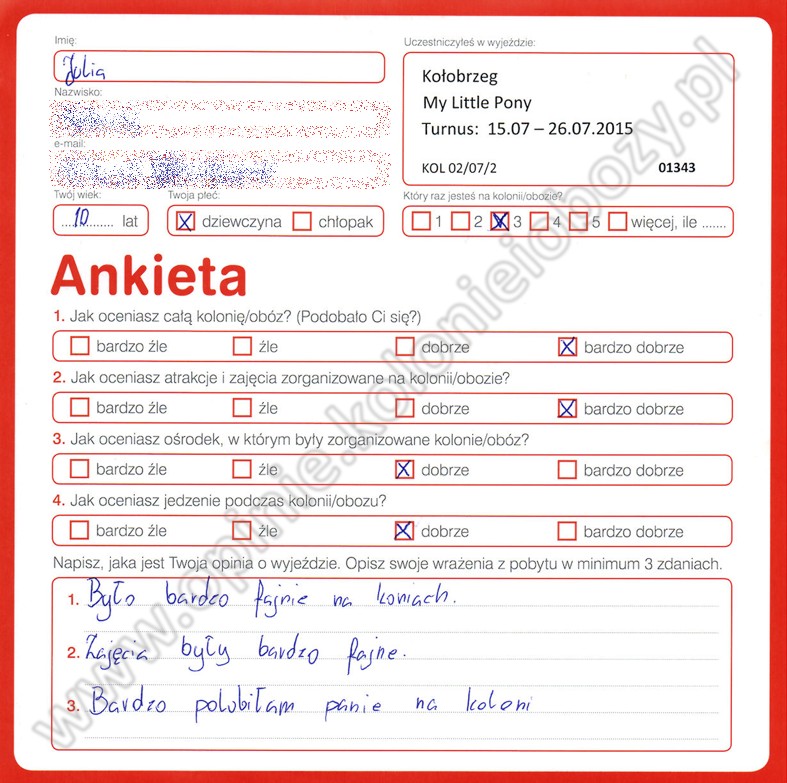 Imię:
Julia
Nazwisko:
e-mail:
Twój wiek:
10 lat
Twoja płeć:
dziewczyna chłopak
Uczestniczyłeś w wyjeździe:
Kołobrzeg
My Little Pony
Turnus: 15.07 – 26.07.2015
KOL 02/07/2 01343
Który raz jesteś na kolonii/obozie?
1 2 3 4 5 więcej, ile .......
Ankieta
1. Jak oceniasz całą kolonię/obóz? (Podobało Ci się?)
bardzo źle źle dobrze bardzo dobrze
2. Jak oceniasz atrakcje i zajęcia zorganizowane na kolonii/obozie?
bardzo źle źle dobrze bardzo dobrze
3. Jak oceniasz ośrodek, w którym były zorganizowane kolonie/obóz?
bardzo źle źle dobrze bardzo dobrze
4. Jak oceniasz jedzenie podczas kolonii/obozu?
bardzo źle źle dobrze bardzo dobrze
Napisz, jaka jest Twoja opinia o wyjeździe. Opisz swoje wrażenia z pobytu w minimum 3 zdaniach.
1. Było bardzo fajnie na koniach.
2. Zajęcia były bardzo fajne.
3. Bardzo polubiłam panie na koloni
www.opinie.kolonieiobozy.pl